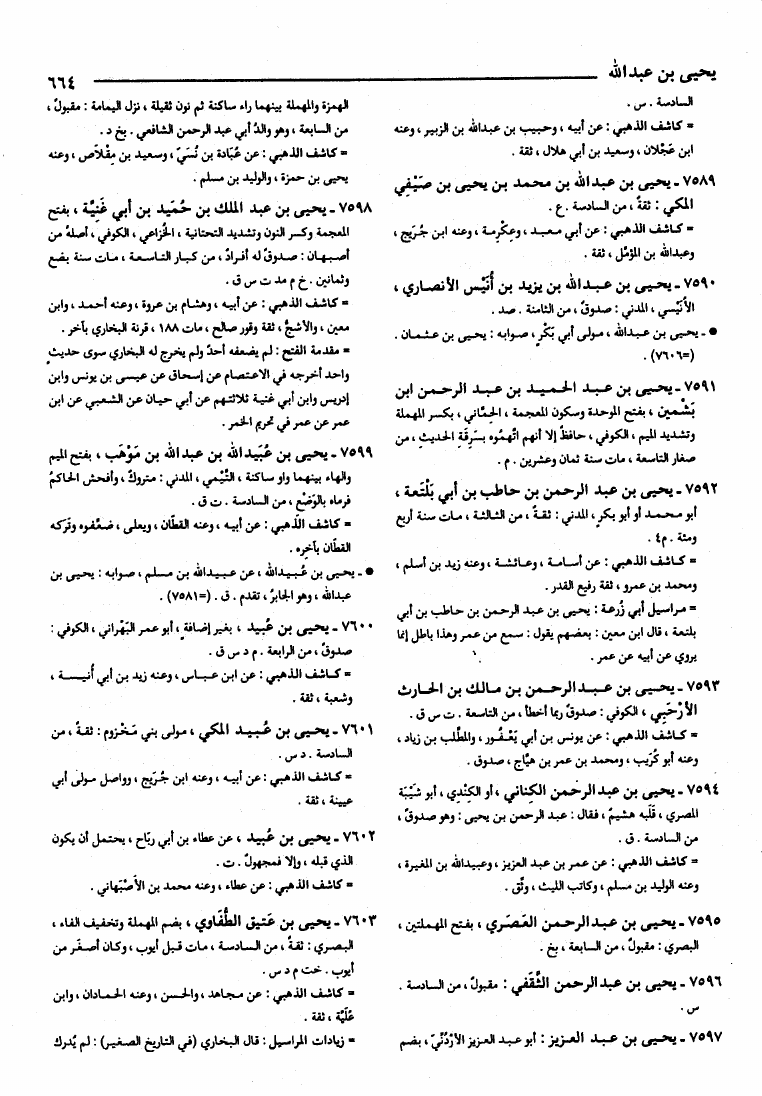 يحيى بن عبدالله
٦٦٤
السادسة . س .
= كاشف الذهبي : عن أبيه ، وحبيب بن عبدالله بن الزبير ، وعنه
ابن عَجْلان ، وسعيد بن أبي هلال ، ثقة .
٧٥٨٩ ـ يحيى بن عبدالله بن محمد بن يحيى بن صَيْفِي
المكي : ثقةٌ ، من السادسة . ع .
= كاشف الذهبي : عن أبي معبد ، وعِكْرِمة ، وعنه ابن جُرَيج ،
وعبدالله بن المؤمَّل ، ثقة .
٧٥٩٠ ـ يحيى بن عبدالله بن يزيد بن أُنَيْس الأنصاري ،
الأُنَيْسي ، المدني : صدوقٌ ، من الثامنة . صد .
● ـ يحيى بن عبدالله ، مولى أبي بَكْرٍ ، صوابه : يحيى بن عثمان .
(=٧٦٠٦) .
٧٥٩١ ـ يحيى بن عبد الحميد بن عبد الرحمن ابن
بَشْمِين ، بفتح الموحدة وسكون المعجمة ، الحِمَّاني ، بكسر المهملة
وتشديد الميم ، الكوفي ، حافظٌ إلا أنهم اتَّهمُوه بسَرِقَةِ الحديث ، من
صغار التاسعة ، مات سنة ثمان وعشرين . م .
٧٥٩٢ ـ يحيى بن عبد الرحمن بن حاطب بن أبي بَلْتَعة ،
أبو محمد أو أبو بكر ، المدني : ثقةٌ ، من الثالثة ، مات سنة أربع
ومئة . م٤ .
= كاشف الذهبي : عن أسامة ، وعائشة ، وعنه زيد بن أسلم ،
ومحمد بن عمرو ، ثقة رفيع القدر .
= مراسيل أبي زُرعة : يحيى بن عبد الرحمن بن حاطب بن أبي
بلتعة ، قال ابن معين : بعضهم يقول : سمع من عمر وهذا باطل إنما
يروي عن أبيه عن عمر .
٧٥٩٣ ـ يحيى بن عبدالرحمن بن مالك بن الحارث
الأرْحَبِي ، الكوفي : صدوقٌ ربما أخطأ ، من التاسعة . ت س ق .
= كاشف الذهبي : عن يونس بن أبي يَعْفُور ، والمطَّلب بن زياد ،
وعنه أبو كُرَيب ، ومحمد بن عمر بن هيَّاج ، صدوق .
٧٥٩٤ ـ يحيى بن عبدالرحمن الكِناني ، أو الكِنْدي ، أبو شَيْبَة
المصري ، قَلَبه هشيمٌ ، فقال : عبد الرحمن بن يحيى : وهو صدوقٌ ،
من السادسة . ق .
= كاشف الذهبي : عن عمر بن عبد العزيز ، وعبيدالله بن المغيرة ،
وعنه الوليد بن مسلم ، وكاتب الليث ، وثِّق .
٧٥٩٥ ـ يحيى بن عبدالرحمن العَصَري ، بفتح المهملتين ،
البصري : مقبولٌ ، من السابعة ، بخ .
٧٥٩٦ ـ يحيى بن عبدالرحمن الثَّقَفي : مقبولٌ ، من السادسة .
س .
٧٥٩٧ ـ يحيى بن عبد العزيز : أبو عبد العزيز الأرْدُنِّيّ ، بضم
الهمزة والمهملة بينهما راء ساكنة ثم نون ثقيلة ، نزل اليمامة : مقبولٌ ،
من السابعة ، وهو والدُ أبي عبد الرحمن الشافعي . بخ د .
= كاشف الذهبي : عن عُبَادة بن نُسَيّ ، وسعيد بن مِقْلاص ، وعنه
يحيى بن حمزة ، والوليد بن مسلم .
٧٥٩٨ ـ يحيى بن عبد الملك بن حُمَيد بن أبي غَنِيَّة ، بفتح
المعجمة وكسر النون وتشديد التحتانية ، الخُزاعي ، الكوفي ، أصلهُ من
أصبهان : صدوقٌ له أفرادٌ ، من كبار التاسعة ، مات سنة بضع
وثمانين . خ م مد ت س ق .
= كاشف الذهبي : عن أبيه ، وهشام بن عروة ، وعنه أحمد ، وابن
معين ، والأشجُّ ، ثقة وقور صالح ، مات ١٨٨ ، قرنة البخاري بآخر .
= مقدمة الفتح : لم يضعفه أحدٌ ولم يخرج له البخاري سوى حديث
واحد أخرجه في الاعتصام عن إسحاق عن عيسى بن يونس وابن
إدريس وابن أبي غنية ثلاثتهم عن أبي حيان عن الشعبي عن ابن
عمر عن عمر في تحريم الخمر .
٧٥٩٩ ـ يحيى بن عُبَيدالله بن عبدالله بن مَوْهَب ، بفتح الميم
والهاء بينهما واو ساكنة ، التَّيْمي ، المدني : متروكٌ ، وأفحش الحاكمُ
فرماه بالوَضْع ، من السادسة . ت ق .
= كاشف الذهبي : عن أبيه ، وعنه القطَّان ، ويعلى ، ضعَّفوه وتركه
القطَّان بآخره .
● ـ يحيى بن عُبيدالله ، عن عبيدالله بن مسلم ، صوابه : يحيى بن
عبدالله ، وهو الجابرُ ، تقدم . ق . (=٧٥٨١) .
٧٦٠٠ ـ يحيى بن عُبيد ، بغير إضافة ، أبو عمر البَهْراني ، الكوفي :
صدوقٌ ، من الرابعة . م د س ق .
= كاشف الذهبي : عن ابن عباس ، وعنه زيد بن أبي أُنيسة ،
وشعبة ، ثقة .
٧٦٠١ ـ يحيى بن عُبيد المكي ، مولى بني مَخْزوم : ثقةٌ ، من
السادسة . د س .
= كاشف الذهبي : عن أبيه ، وعنه ابن جُرَيج ، وواصل مولى أبي
عيينة ، ثقة .
٧٦٠٢ ـ يحيى بن عُبيد ، عن عطاء بن أبي ربَاح ، يحتمل أن يكون
الذي قبله ، وإلا فمجهولٌ . ت .
= كاشف الذهبي : عن عطاء ، وعنه محمد بن الأَصْبَهاني .
٧٦٠٣ ـ يحيى بن عَتيق الطُّفَاوي ، بضم المهملة وتخفيف الفاء ،
البصري : ثقةٌ ، من السادسة ، مات قبل أيوب ، وكان أصغَر من
أيوب . خت م د س .
= كاشف الذهبي : عن مجاهد ، والحسن ، وعنه الحمادان ، وابن
عُلَيَّة ، ثقة .
= زيادات المراسيل : قال البخاري (في التاريخ الصغير) : لم يُدرك